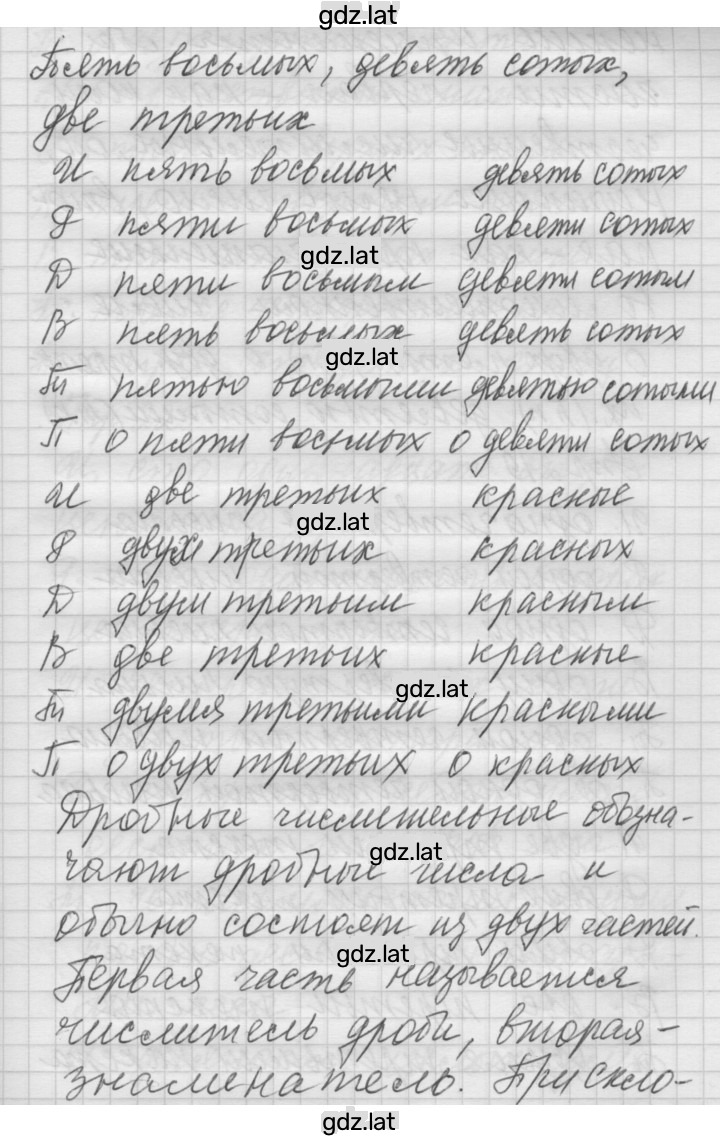 gdz.lat
Пять восьмых, девять сотых,
две третьих
И пять восьмых девять сотых
Р пяти восьмых девяти сотых
gdz.lat
Д пяти восьмым девяти сотым
В пять восьмых девять сотых
gdz.lat
Тв пятью восьмыми девятью сотыми
П о пяти восьмых о девяти сотых
И две третьих красные
gdz.lat
Р двух третьих красных
Д двум третьим красным
В две третьих красные
gdz.lat
Тв двумя третьими красными
П о двух третьих о красных
Дробные числительные обозна-
gdz.lat
чают дробные числа и
обычно состоят из двух частей.
gdz.lat
Первая часть называется
числитель дроби, вторая -
знаменатель. При скло-
gdz.lat